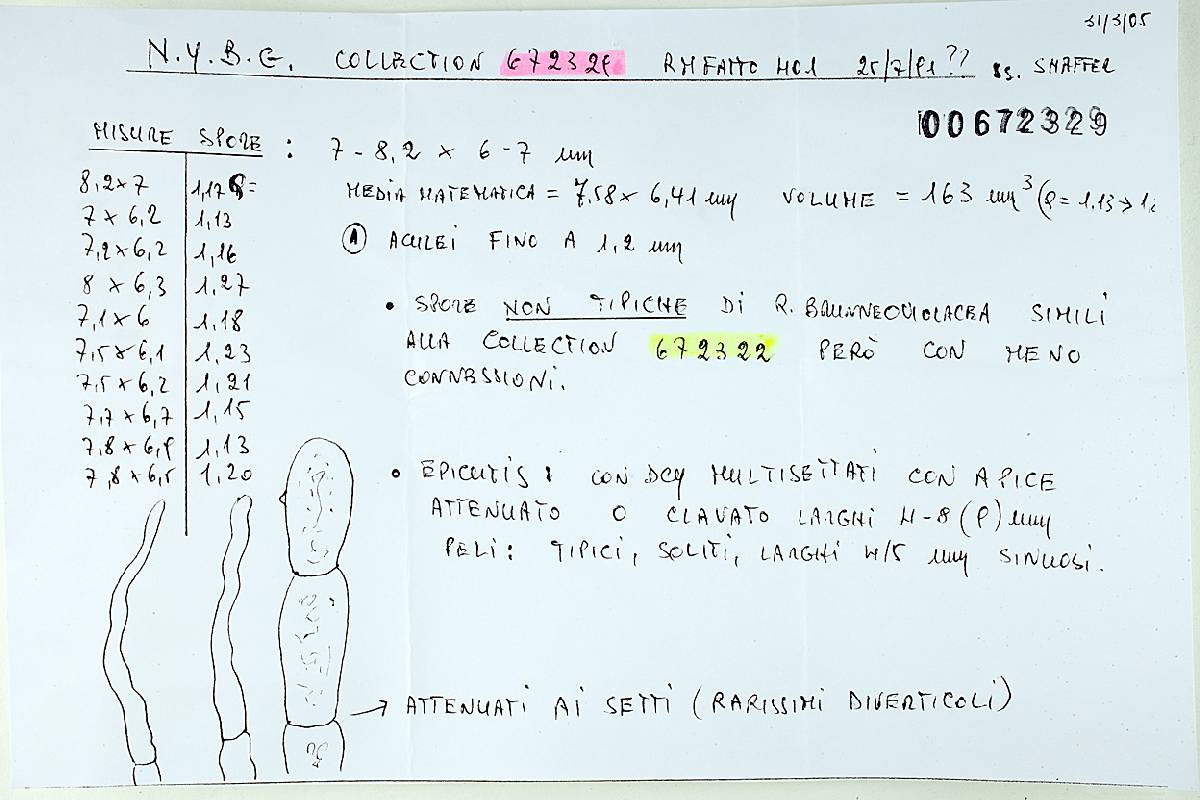 31/3/05
N.Y.B.G. COLLECTION 672329 25/7/91?? SHAFFER
00672329
MISURE SPORE : 7 - 8,2 × 6 - 7 µm
8,2×7 1,17
MEDIA MATEMATICA = 7,58 × 6,41 µm VOLUME = 163 µm³ (Q = 1,13 →
7 × 6,2 1,13
A ACULEI FINO A 1,2 µm
7,2×6,2 1,16
8 × 6,3 1,27
7,1×6 1,18
7,5×6,1 1,23
7,5×6,2 1,21
7,7×6,7 1,15
7,8×6,9 1,13
7,8×6,5 1,20
• SPORE NON TIPICHE DI R. BRUNNEOVIOLACEA SIMILI
ALLA COLLECTION 672322 PERÒ CON MENO
CONNESSIONI.
• EPICUTIS : CON DCY MULTISETTATI CON APICE
ATTENUATO O CLAVATO LARGHI 4-8 (9) µm
PELI : TIPICI, SOLITI, LARGHI 4/5 µm SINUOSI.
→ ATTENUATI AI SETTI (RARISSIMI DIVERTICOLI)